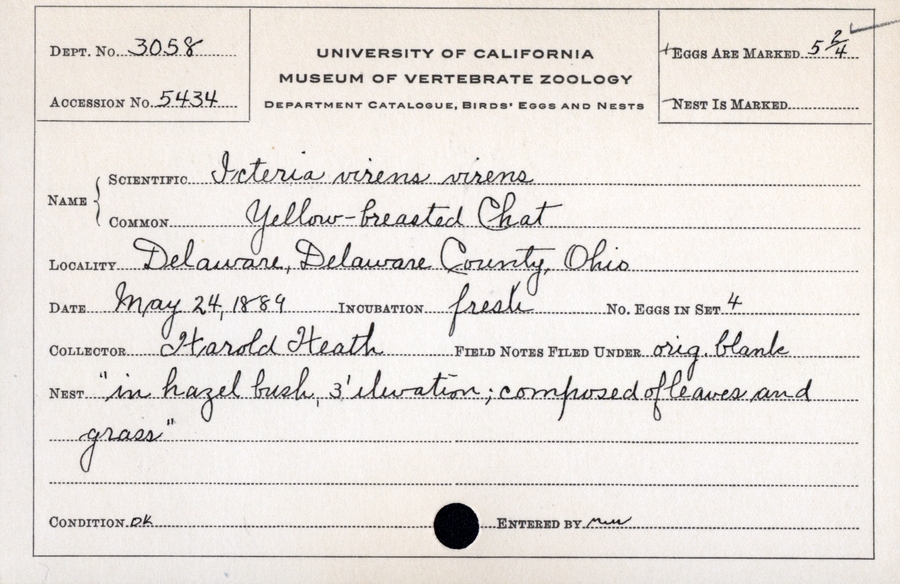 DEPT. NO. 3058
ACCESSION NO. 5434
UNIVERSITY OF CALIFORNIA
MUSEUM OF VERTEBRATE ZOOLOGY
DEPARTMENT CATALOGUE, BIRDS' EGGS AND NESTS
EGGS ARE MARKED 5 2/4
NEST IS MARKED
NAME
SCIENTIFIC Icteria virens virens
COMMON Yellow-breasted Chat
LOCALITY Delaware, Delaware County, Ohio
DATE May 24, 1889 INCUBATION fresh NO. EGGS IN SET 4
COLLECTOR Harold Heath FIELD NOTES FILED UNDER orig. blank
NEST "in hazel bush, 3' elevation; composed of leaves and
grass"
CONDITION OK ENTERED BY